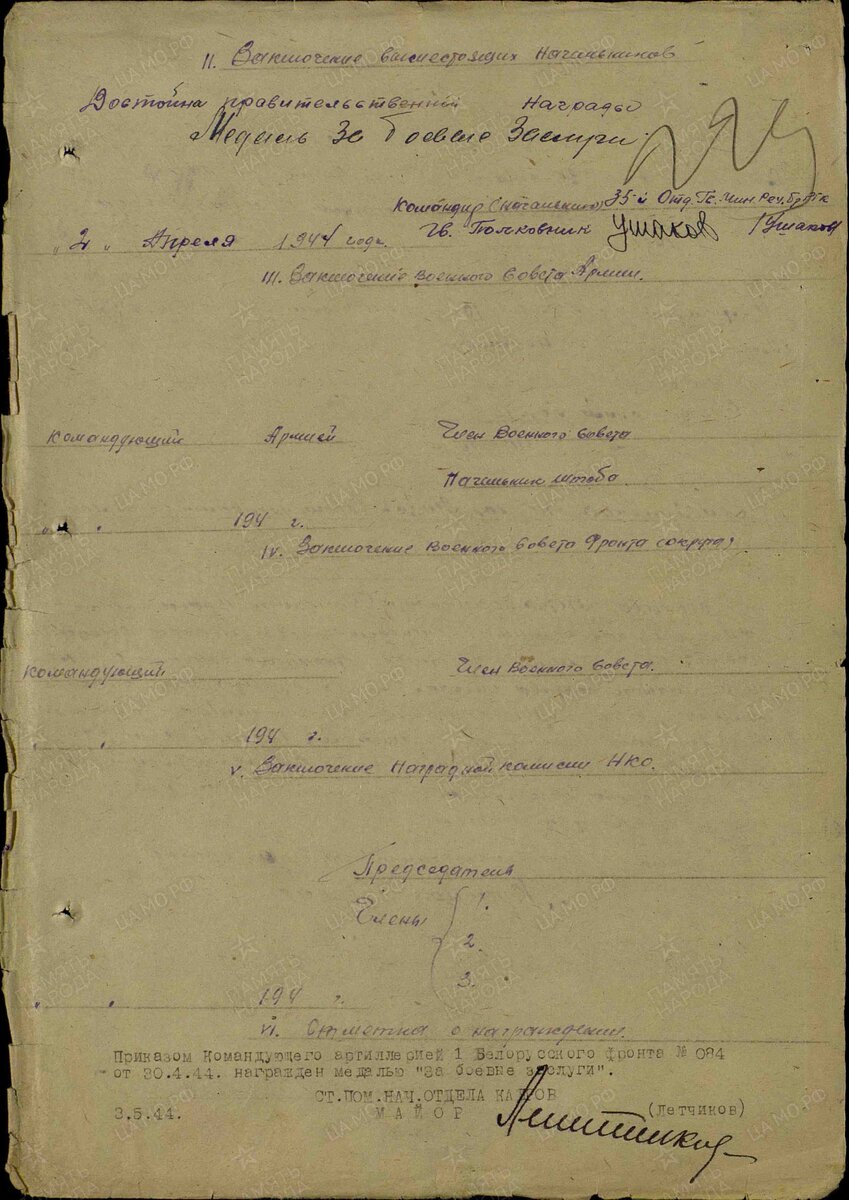 II. Заключение вышестоящих начальников
Достойна правительственной награды
Медаль За боевые Заслуги.
Командир 35-й Отд. Гв. Мин
"2" Апреля 1944 года Гв. Полковник Ушаков /Ушаков/
III. Заключение Военного Совета Армии.
Командующий Армией Член Военного Совета
Начальник штаба
" " 194 г.
IV. Заключение Военного Совета Фронта (округа)
Командующий Член Военного Совета.
" " 194 г.
V. Заключение Наградной комиссии НКО.
Председатель
Члены 1.
2.
3.
" " 194 г.
VI. Отметка о награждении.
Приказом Командующего артиллерией 1 Белорусского фронта № 084
от 30.4.44. награжден медалью "За боевые заслуги".
СТ.ПОМ.НАЧ.ОТДЕЛА КАДРОВ
3.5.44. МАЙОР (Летчиков)
ПАМЯТЬ НАРОДА
ЦАМО.РФ